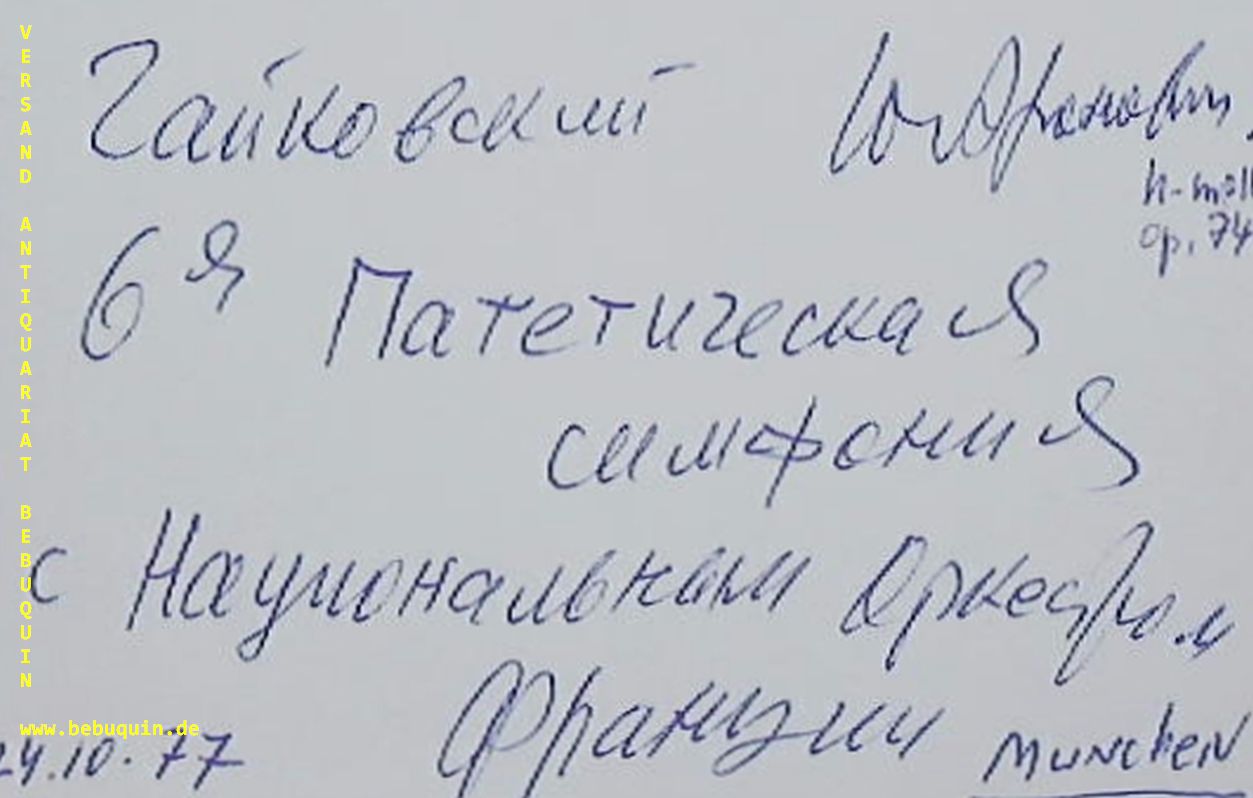 Чайковский
h-moll
op. 74
6я Патетическая
симфония
с Национальным Оркестром
Франции
24.10.77 MUNCHEN
VERSAND ANTIQUARIAT BEBUQUIN
www.bebuquin.de